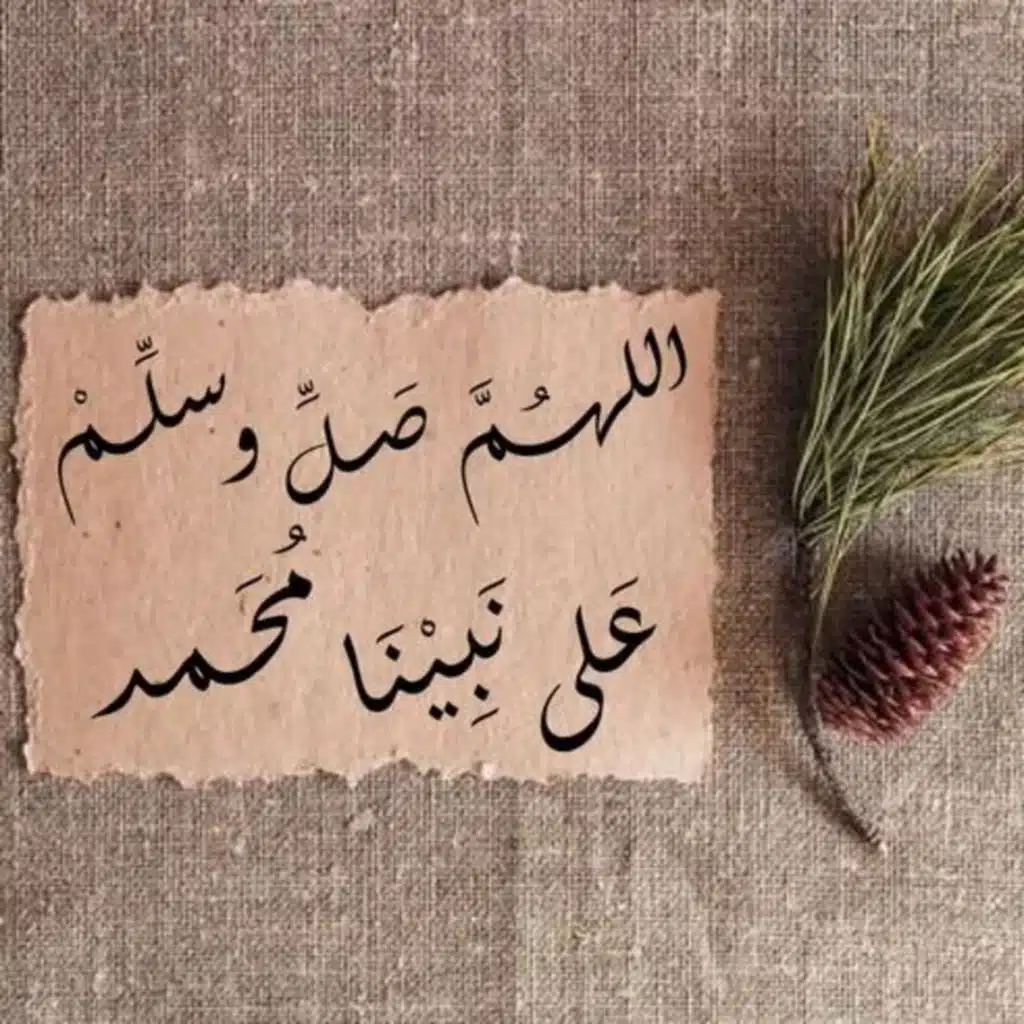 اللهُمَّ صَلِّ وسلِّمْ
عَلى نَبِيْنَا مُحَمد